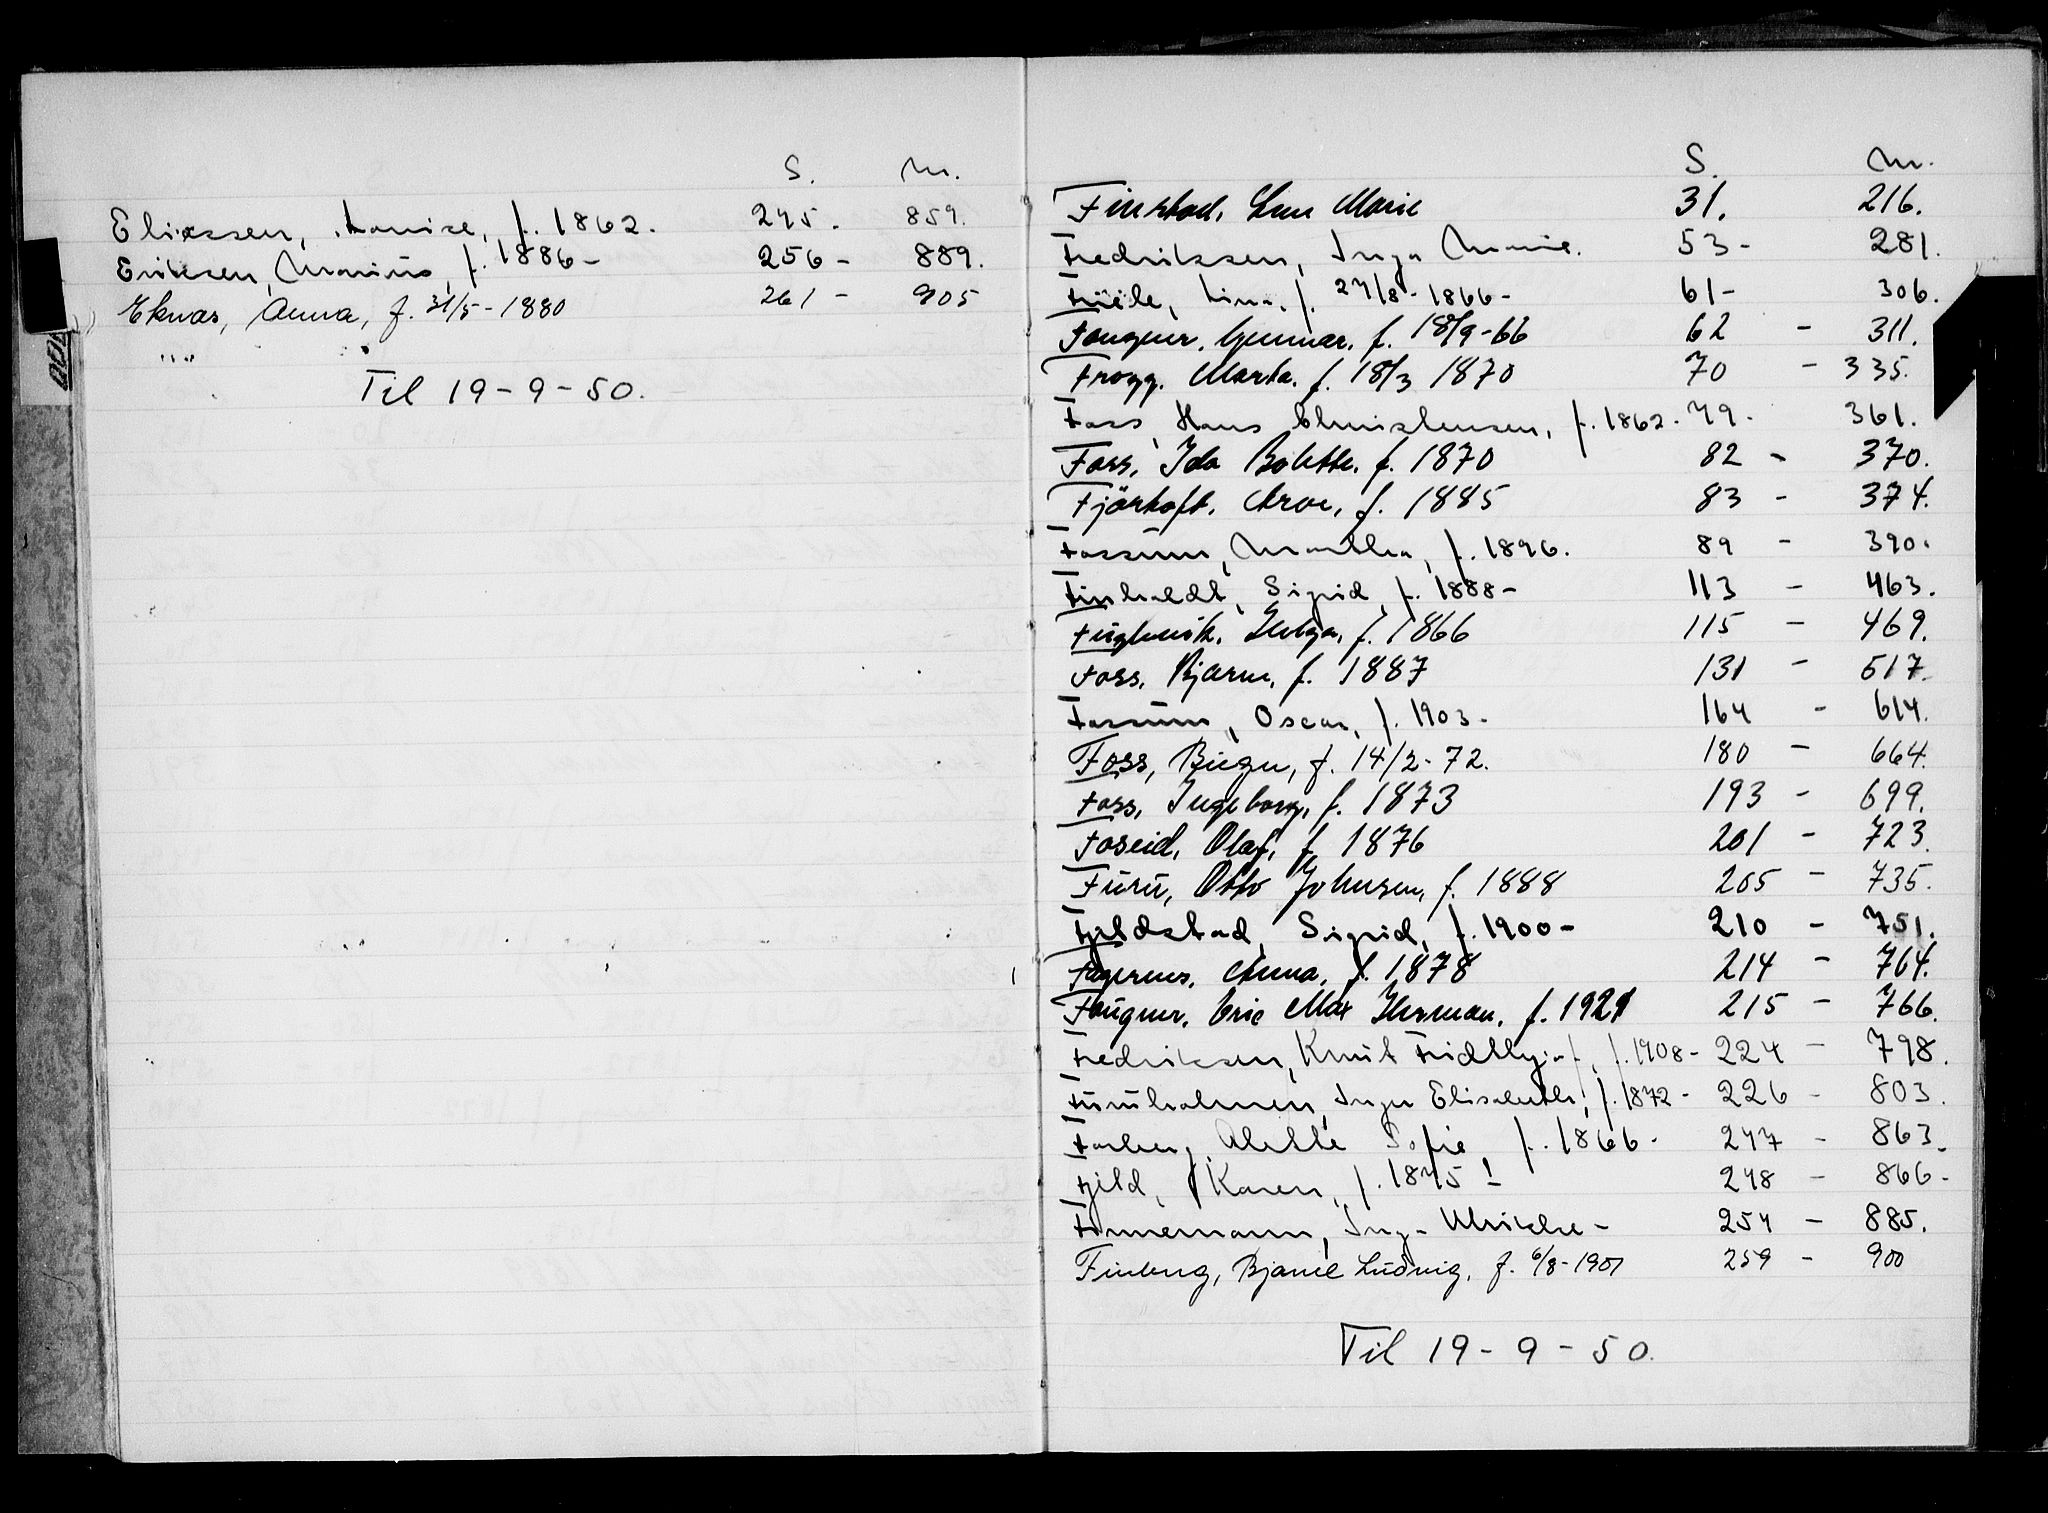 S. Nr.
Eliassen, Louise, f. 1862. 245. 859.
Eriksen, Marius, f. 1886- 256 - 889.
Eknas, Anna, f. 31/5 - 1880 261 - 905
Til 19 - 9 - 50.
S. Nr.
Finstad, Marie 31. 216.
Fredriksen, Inga Marie. 53 - 281.
Friele, Lina, f. 27/8 - 1866 - 61 - 306.
Fougner, Gunnar, f. 18/9 - 66 62 - 311.
Frogg. Marta. f. 18/3 1870 70 - 335.
Foss, Hans Christensen, f. 1862. 79. 361.
Foss, Ida Bolette. f. 1870 82 - 370.
Fjörtoft, Arve, f. 1885 83 - 374.
Fossum, Martha, f. 1896. 89 - 390.
Sigrid, f. 1888 - 113 - 463.
Fuglevik, Helga, f. 1866 115 - 469.
Foss, Bjarne, f. 1887 131 - 517.
Fossum, Oscar, f. 1903 - 164 - 614.
Foss, Birger, f. 14/2 - 72. 180 - 664.
Foss, Ingeborg, f. 1873 193 - 699.
Foseid, Olaf, f. 1876 201 - 723.
Furu, Otto Johnsen, f. 1888 205 - 735.
Fjeldstad, Sigrid, f. 1900 - 210 - 751.
Fagernes, Anna, f. 1878 214 - 764.
Fougner, Eric Max Herman, f. 1921 215 - 766.
Fredriksen, Knut Fridthjof, f. 1908 - 224 - 798.
Furuholmen, Inga Elisabeth, f. 1872 - 226 - 803.
Alette Sofie, f. 1866 - 247 - 863.
Fjeld, Karen, f. 1875 ! 248 - 866 -
Finnemann, Inga Ulrikke - 254 - 885.
Finberg, Bjarne Ludvig, f. 6/8 - 1901 259 - 900
Til 19 - 9 - 50.